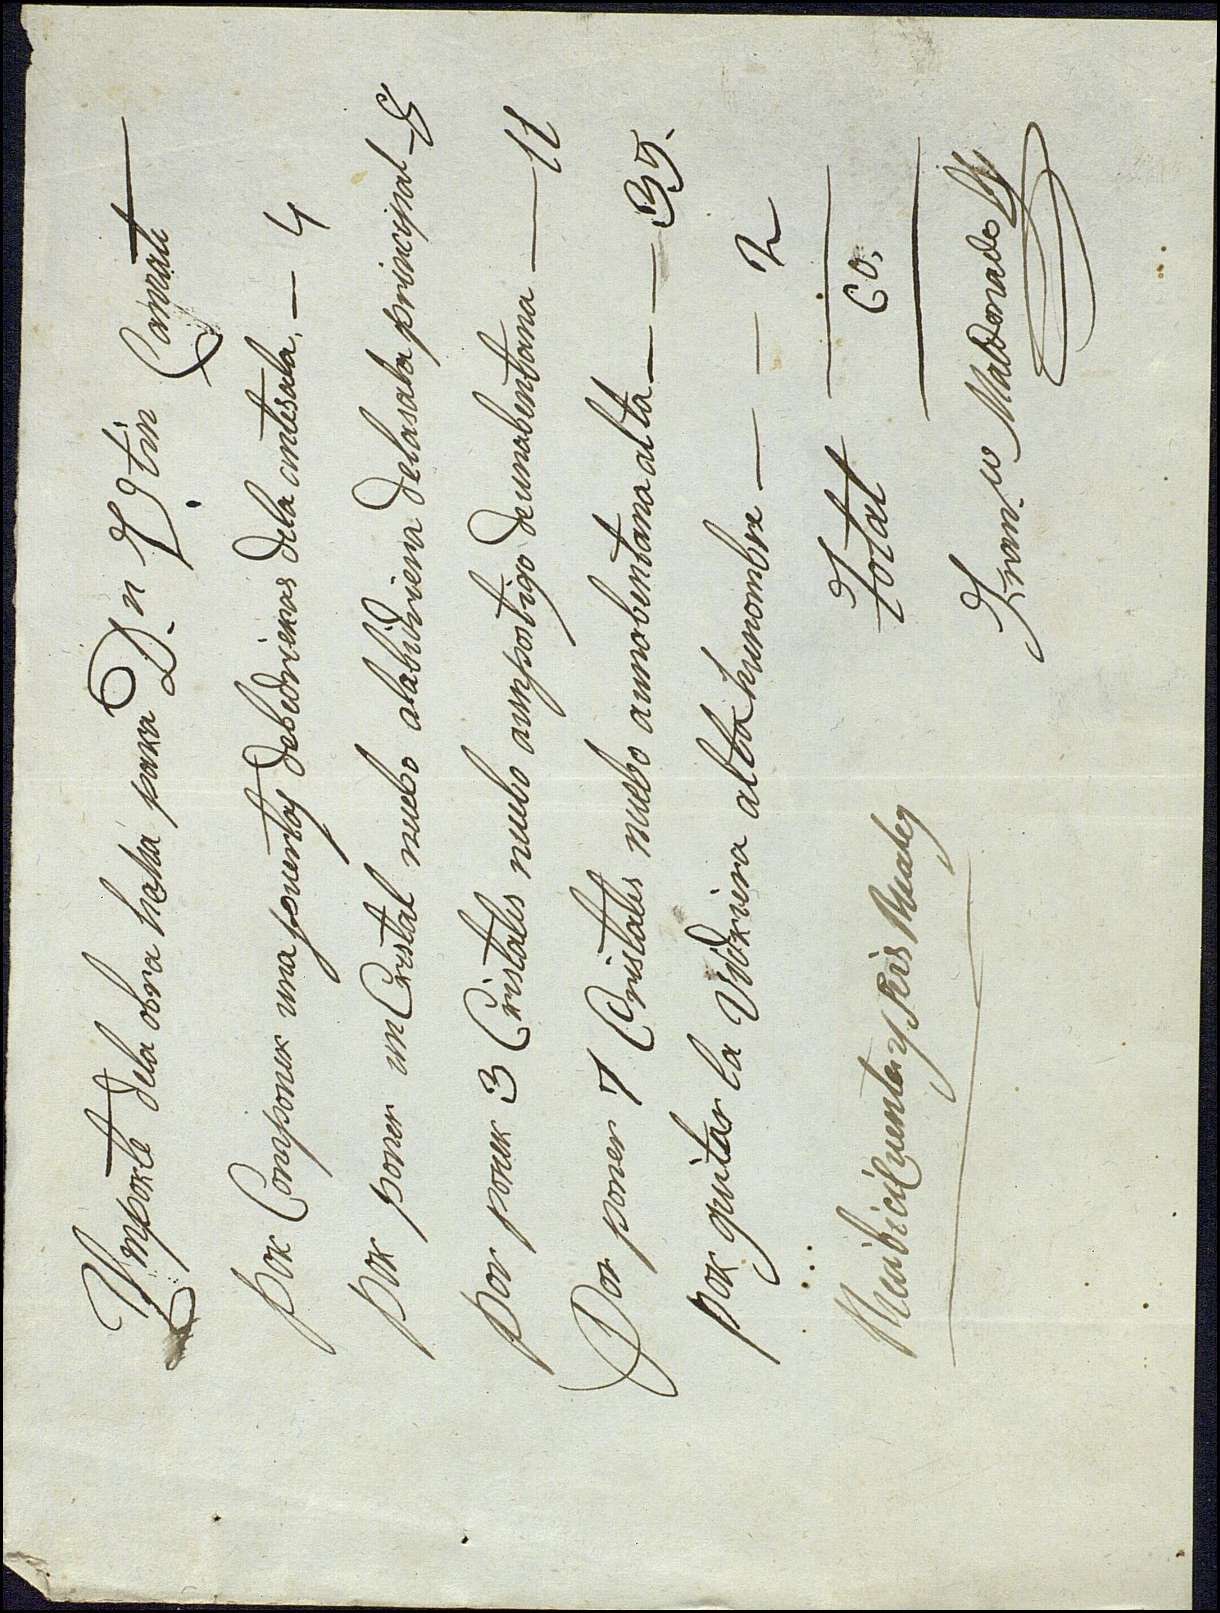 Ymporte dela obra hecha para D.n Agtin Comate
por Componer una puertas debidrieras dela antesala. — 4
por poner un Cristal nuebo alabidriera delasala principal — 8
por poner 3 Cristales nuebo aunpostigo deunabentana — 11
Por poner 7 Cristales nuebo aunabentana alta — 35.
por quitar la Vidriera alta hunombre — 2
Total 60.
Recibi cincuenta y seis Reales
Fran.co Maldonado